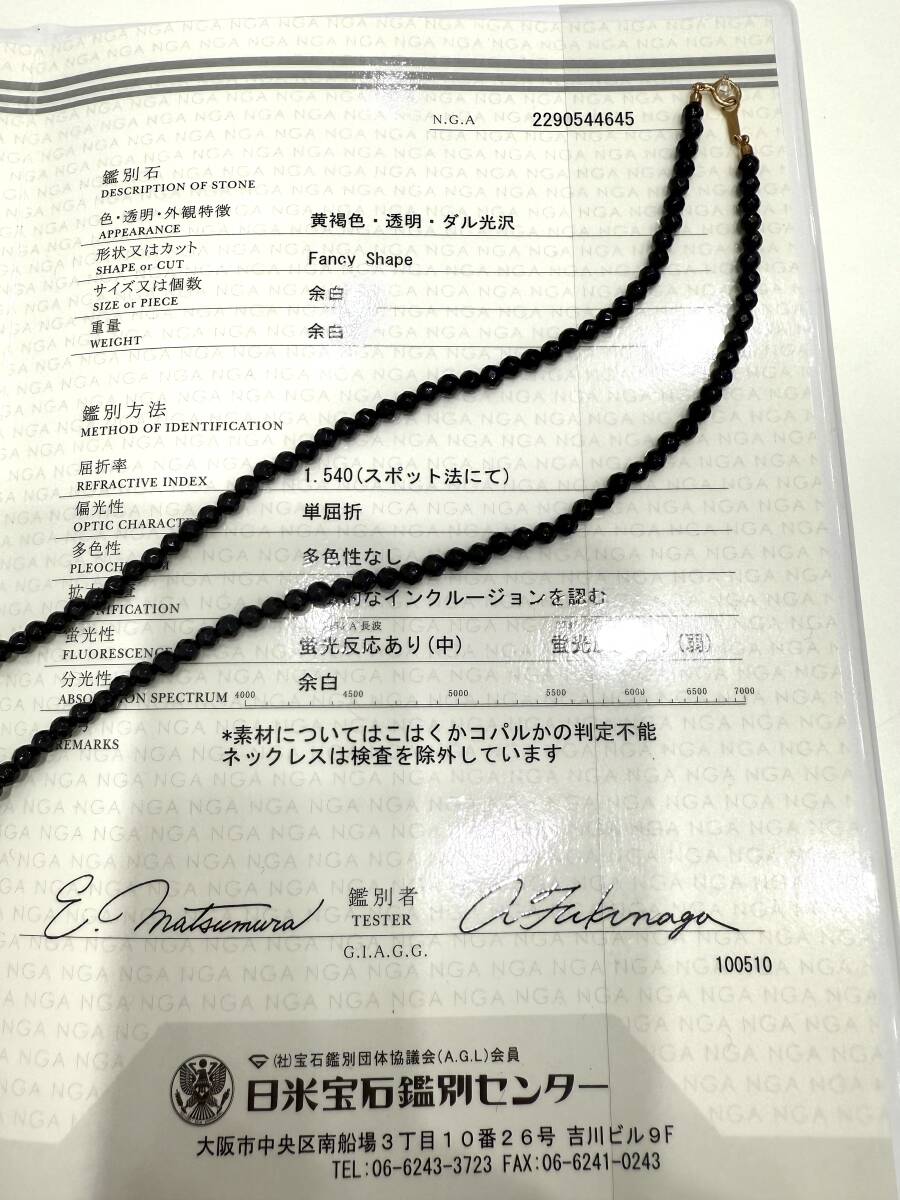 N.G.A 2290544645
鑑別石
DESCRIPTION OF STONE
色・透明・外観特徴 黄褐色・透明・ダル光沢
APPEARANCE
形状又はカット Fancy Shape
SHAPE or CUT
サイズ又は個数 余白
SIZE or PIECE
重量 余白
WEIGHT
鑑別方法
METHOD OF IDENTIFICATION
屈折率 1.540(スポット法にて)
REFRACTIVE INDEX
偏光性 単屈折
OPTIC
多色性 多色性なし
蛍光性 長波
蛍光反応あり(中) (弱)
FLUORESCENCE
的なインクルージョンを認む
分光性 余白
SPECTRUM 4000 4500 5000 5500 6000 6500 7000
REMARKS
*素材についてはこはくかコパルかの判定不能
ネックレスは検査を除外しています
E. Matsumura
鑑別者
TESTER
A. Fukunaga
G.I.A.G.G.
100510
(社)宝石鑑別団体協議会(A.G.L)会員
日米宝石鑑別センター
大阪市中央区南船場3丁目10番26号 吉川ビル9F
TEL:06-6243-3723 FAX:06-6241-0243